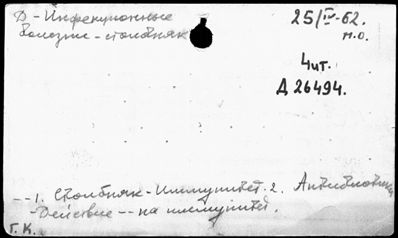 Д - Инфекционные
болезни - столбняк
25/IV-62.
М.О.
4ит.
Д 26494.
--1. Столбняк - Иммунитет. 2. Антибиотики
- Действие -- на иммунитет.
Г. К.